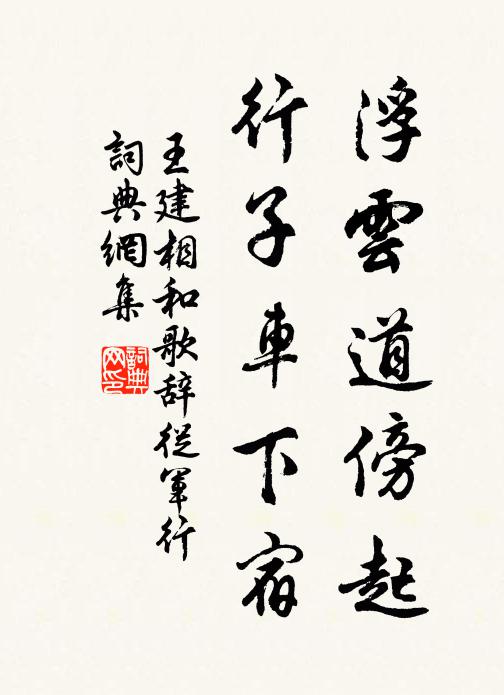 浮雲道傍起
行子車下宿
王建相和歌辞從軍行
詞典網集
詞典網印